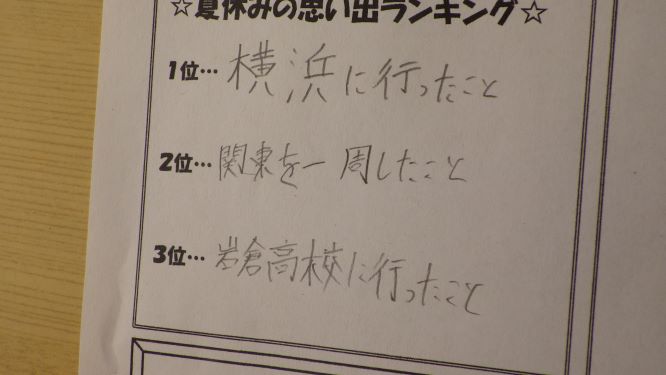 ☆夏休みの思い出ランキング☆
1位…横浜に行ったこと
2位…関東を一周したこと
3位…岩倉高校に行ったこと